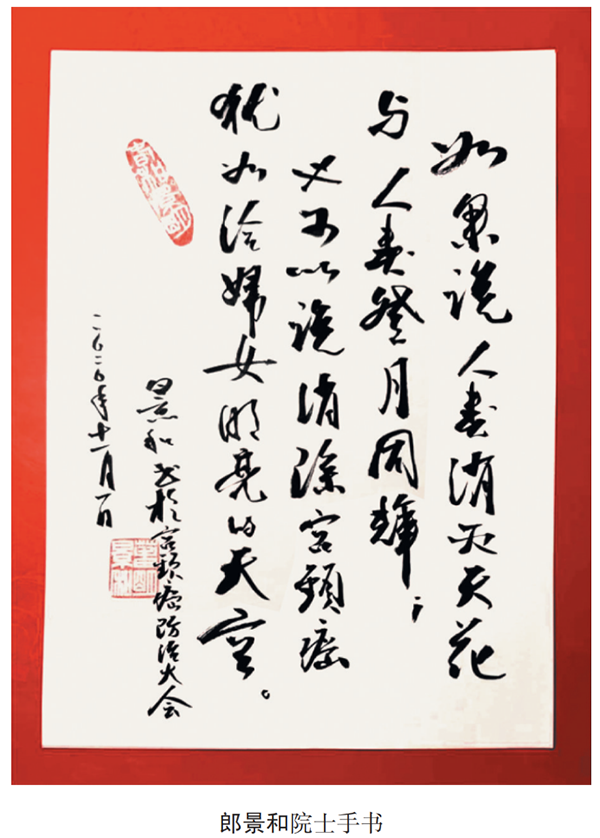 如果说人类消灭天花
与人类登月同辉；
又可以说消除宫颈癌
犹如给妇女明亮的天空。
景和书于宫颈癌防治大会
二〇二〇年十一月一日
郎景和院士手书